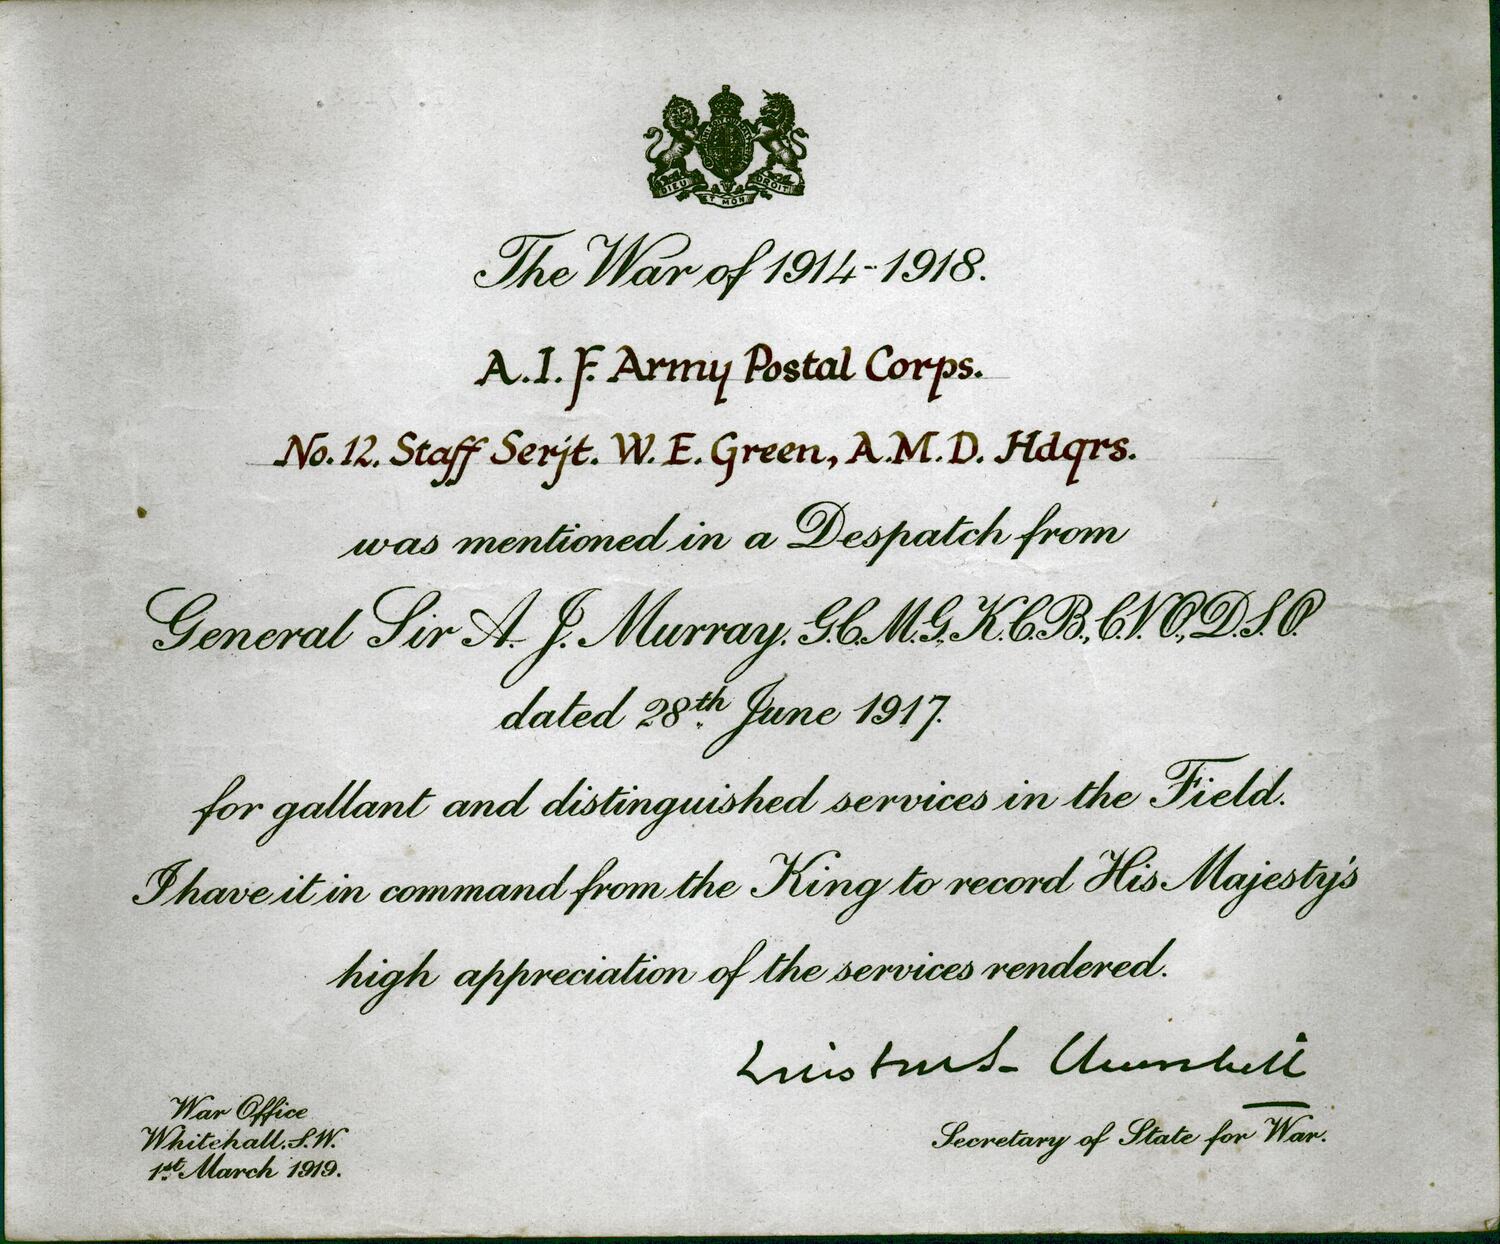 DIEU ET MON DROIT
The War of 1914-1918.
A.I.F. Army Postal Corps.
No. 12. Staff Serjt. W. E. Green, A.M.D. Hdqrs.
was mentioned in a Despatch from
General Sir A. J. Murray. G.C.M.G., K.C.B., C.V.O., D.S.O.
dated 28th June 1917.
for gallant and distinguished services in the Field.
I have it in command from the King to record His Majesty's
high appreciation of the services rendered.
Winston S. Churchill
War Office
Whitehall. S.W.
1st March 1919.
Secretary of State for War.